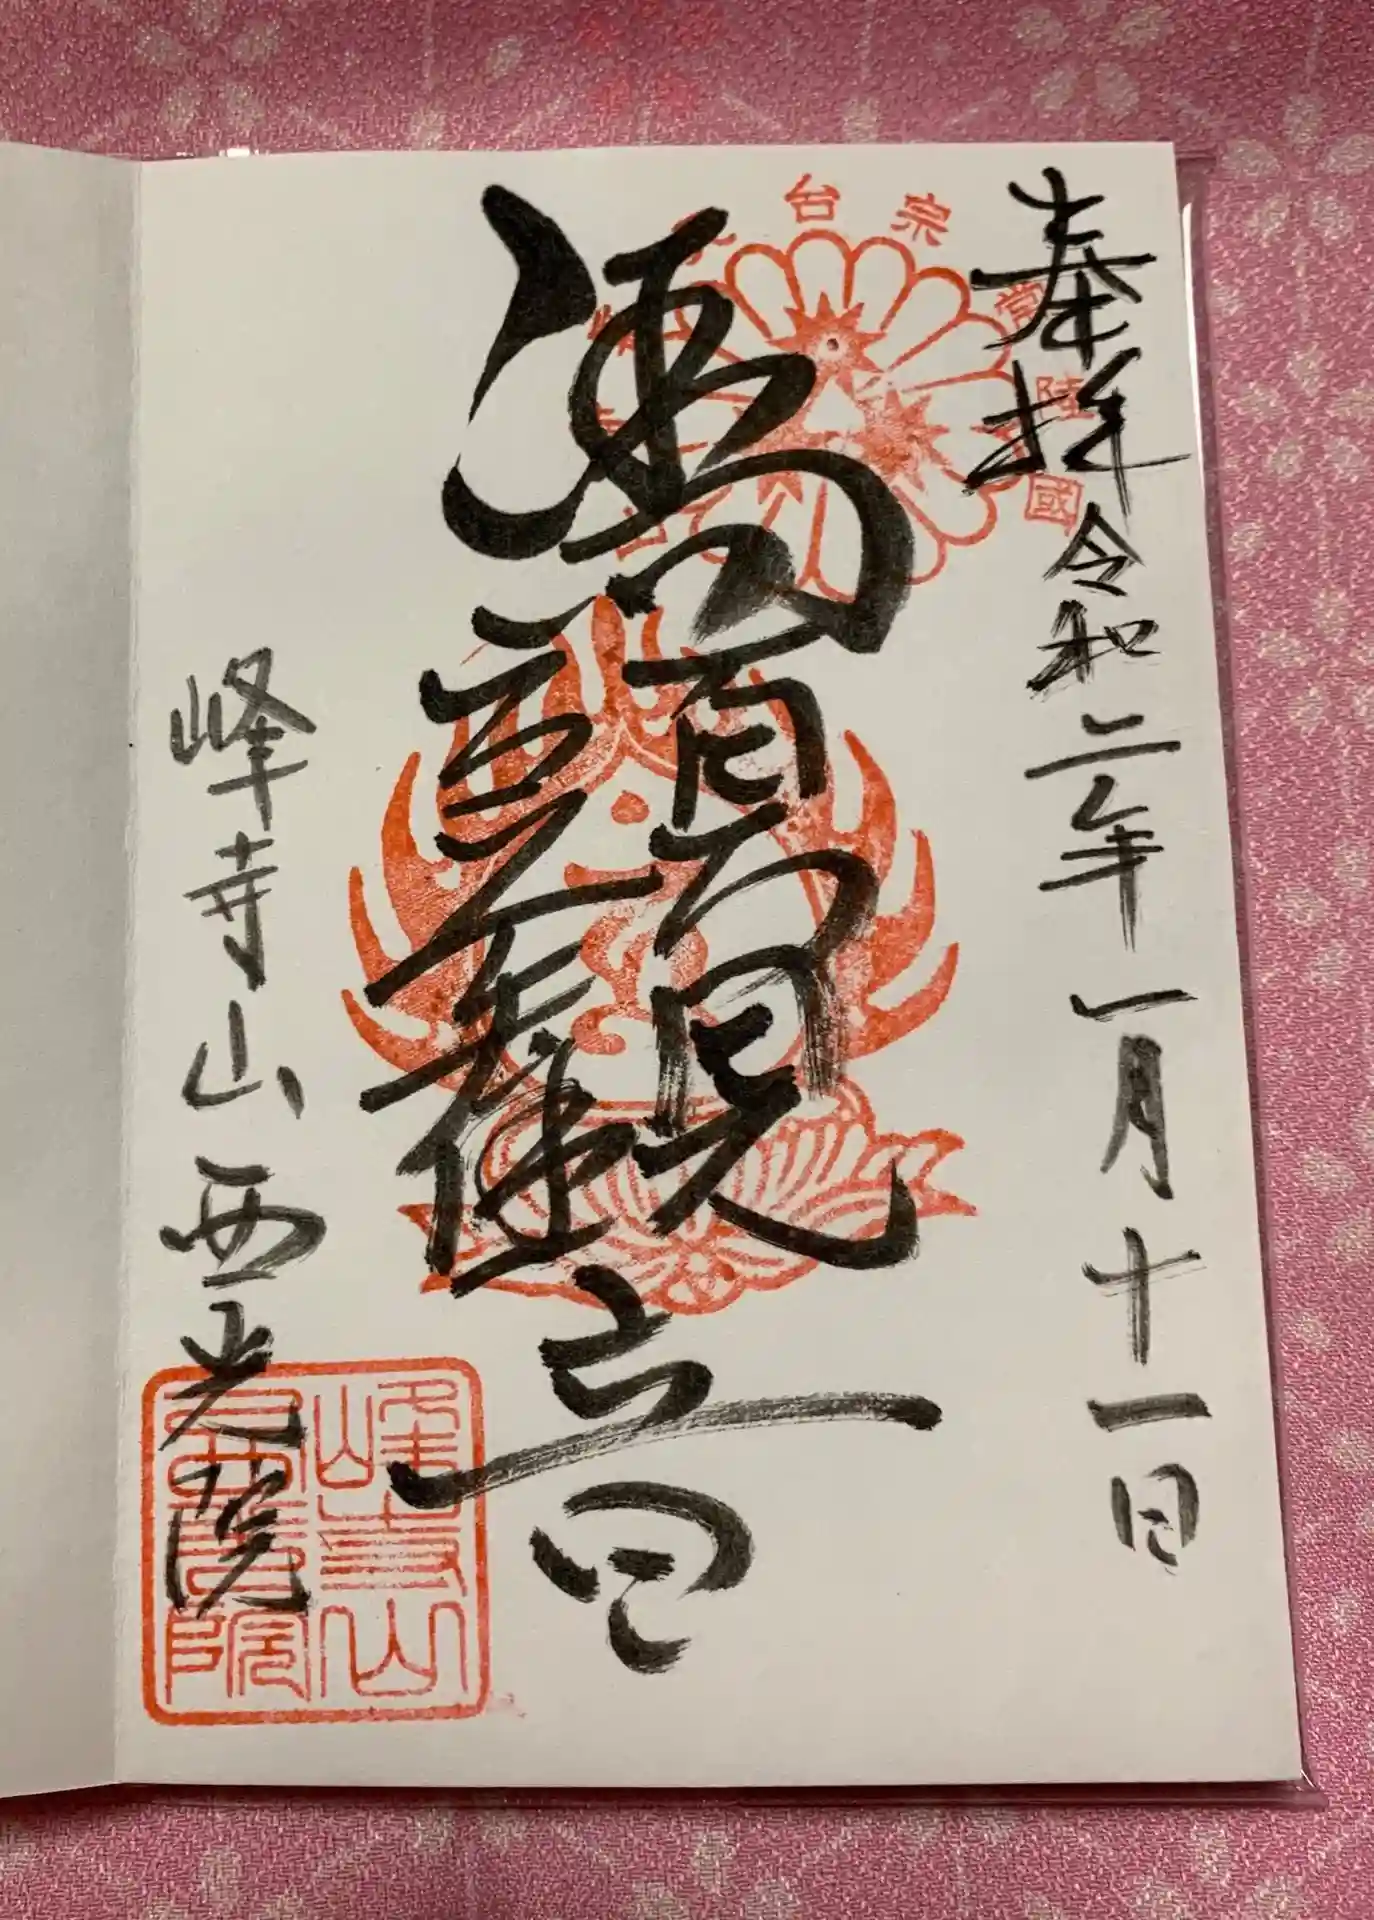 奉拝 令和二年一月十一日
馬頭観音
峰寺山西光院
宗
台
常
陸
國
峰寺山
西光院